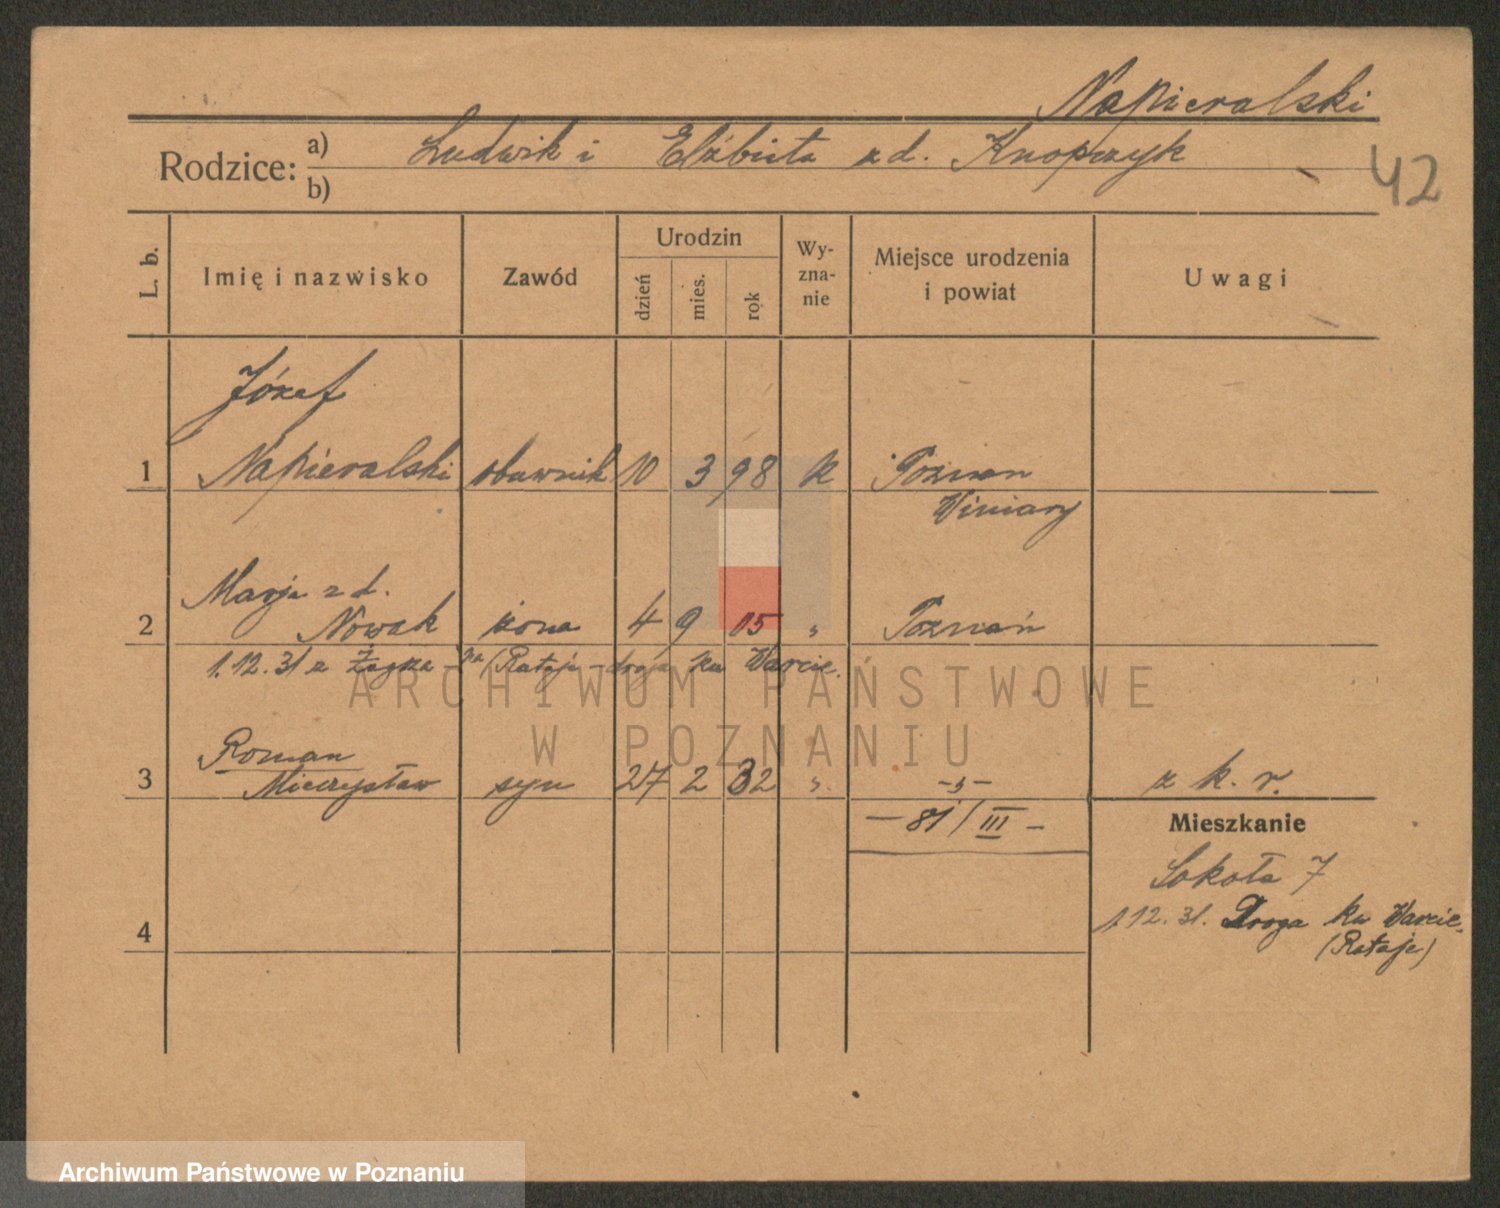 Napieralski
Rodzice: a) Ludwik i Elżbieta z d. Knopczyk
b)
42
L. b. Imię i nazwisko Zawód Urodzin dzień mies. rok Wy-zna-nie Miejsce urodzenia i powiat Uwagi
Józef
1 Napieralski 10 3 98 k Poznan
Winiary
Marja z d.
2 Nowak żona 4 9 05 " Poznań
1.12.31 z Żagrza - na (Rataje - droga ku Warcie.
Roman
3 Mieczysław syn 27 2 32 " -"- z k. r.
- 81/III -
Mieszkanie
Sokoła 7
1.12.31. Droga ku Warcie.
(Rataje)
4
ARCHIWUM PAŃSTWOWE
W POZNANIU
Archiwum Państwowe w Poznaniu